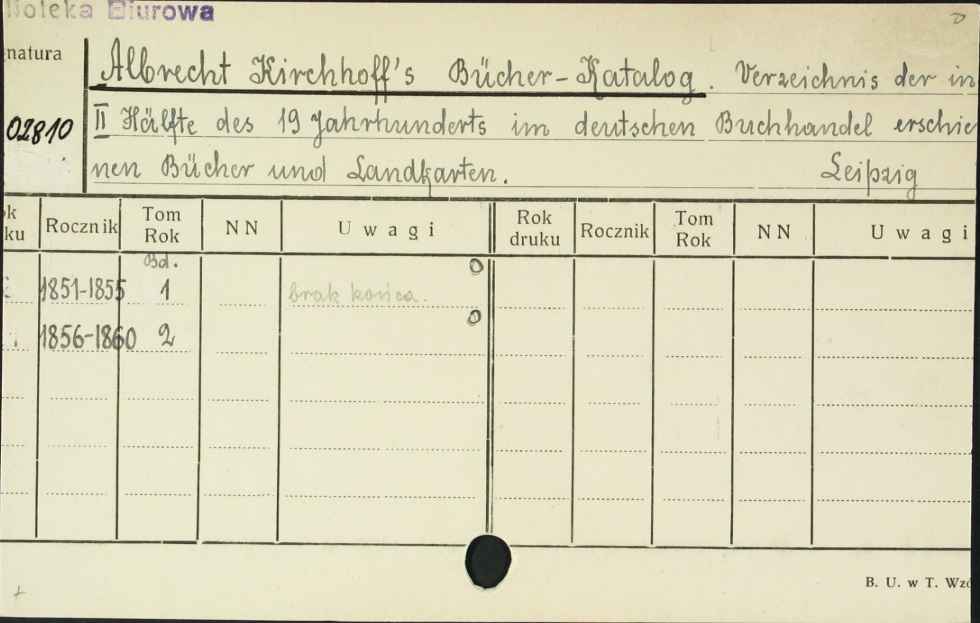 lioteka Biurowa
natura
Albrecht Kirchhoff's Bücher-Katalog. Verzeichnis der in
02810
II Hälfte des 19 Jahrhunderts im deutschen Buchhandel erschie
nen Bücher und Landkarten. Leipzig
ok
ku
Rocznik
Tom
Rok
NN
Uwagi
Rok
druku
Rocznik
Tom
Rok
NN
Uwagi
Bd.
1851-1855 1 brak końca. 0
1856-1860 2 0
B. U. w T. Wzó